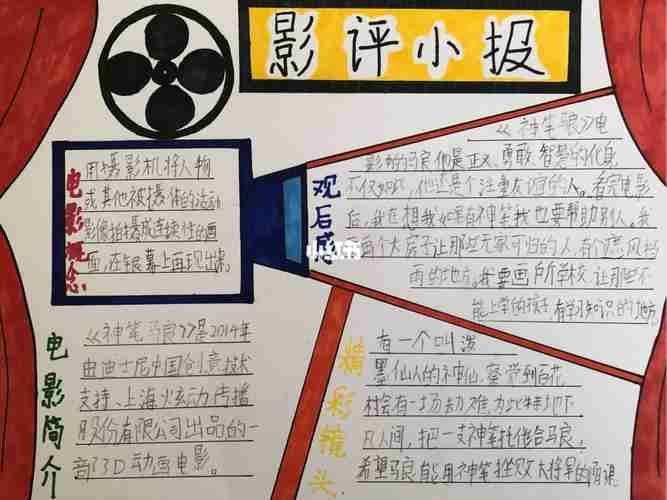 影评小报
电影概念
用摄影机将人物
或其他被摄体的活动
影像拍摄成连续性的画
面,还银幕上再现出来。
观后感
《神笔马良》电
影中的马良他是正义、勇敢、智慧的化身
不仅如此,他还是个注重友谊的人。看完电影
后,我在想我如果有神笔我也要帮助别人。我
画个大房子让那些无家可归的人,有个遮风挡
雨的地方。我要画所学校,让那些不
能上学的孩子,有学习知识的地方
小红书
电影简介
《神笔马良》是2014年
由迪士尼中国创意技术
支持、上海炫动传播
股份有限公司出品的一
部3D动画电影。
精彩镜头
有一个叫泼
墨仙人的神仙,察觉到百花
村会有一场劫难,为此特地下
凡人间,把一支神笔托付给马良,
希望马良能用神笔挫败大将军的阴谋